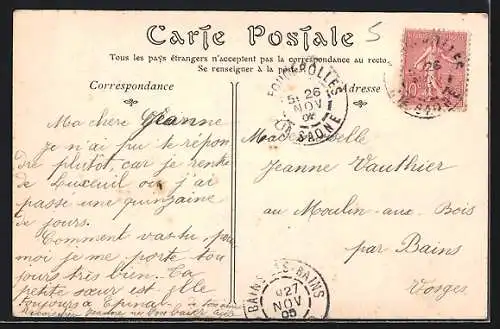 Carte Postale
5
Tous les pays étrangers n'acceptent pas la correspondance au recto.
Se renseigner à la poste
Correspondance
Adresse
FOUGEROLLES
26
NOV
HTE SAONE
10
Ma chere Jeanne
Je n'ai pu te répon
dre plutôt, car je rentre
de Luxeuil ou j'ai
passé une quinzaine
de jours.
Comment vas-tu, pour
moi je me porte tou
jours très bien. Ta
petite sœur est elle
toujours à Epinal
Mademoiselle
Jeanne Vauthier
au Moulin-aux-Bois
par Bains
Vosges
BAINS-LES-BAINS
27
NOV
05